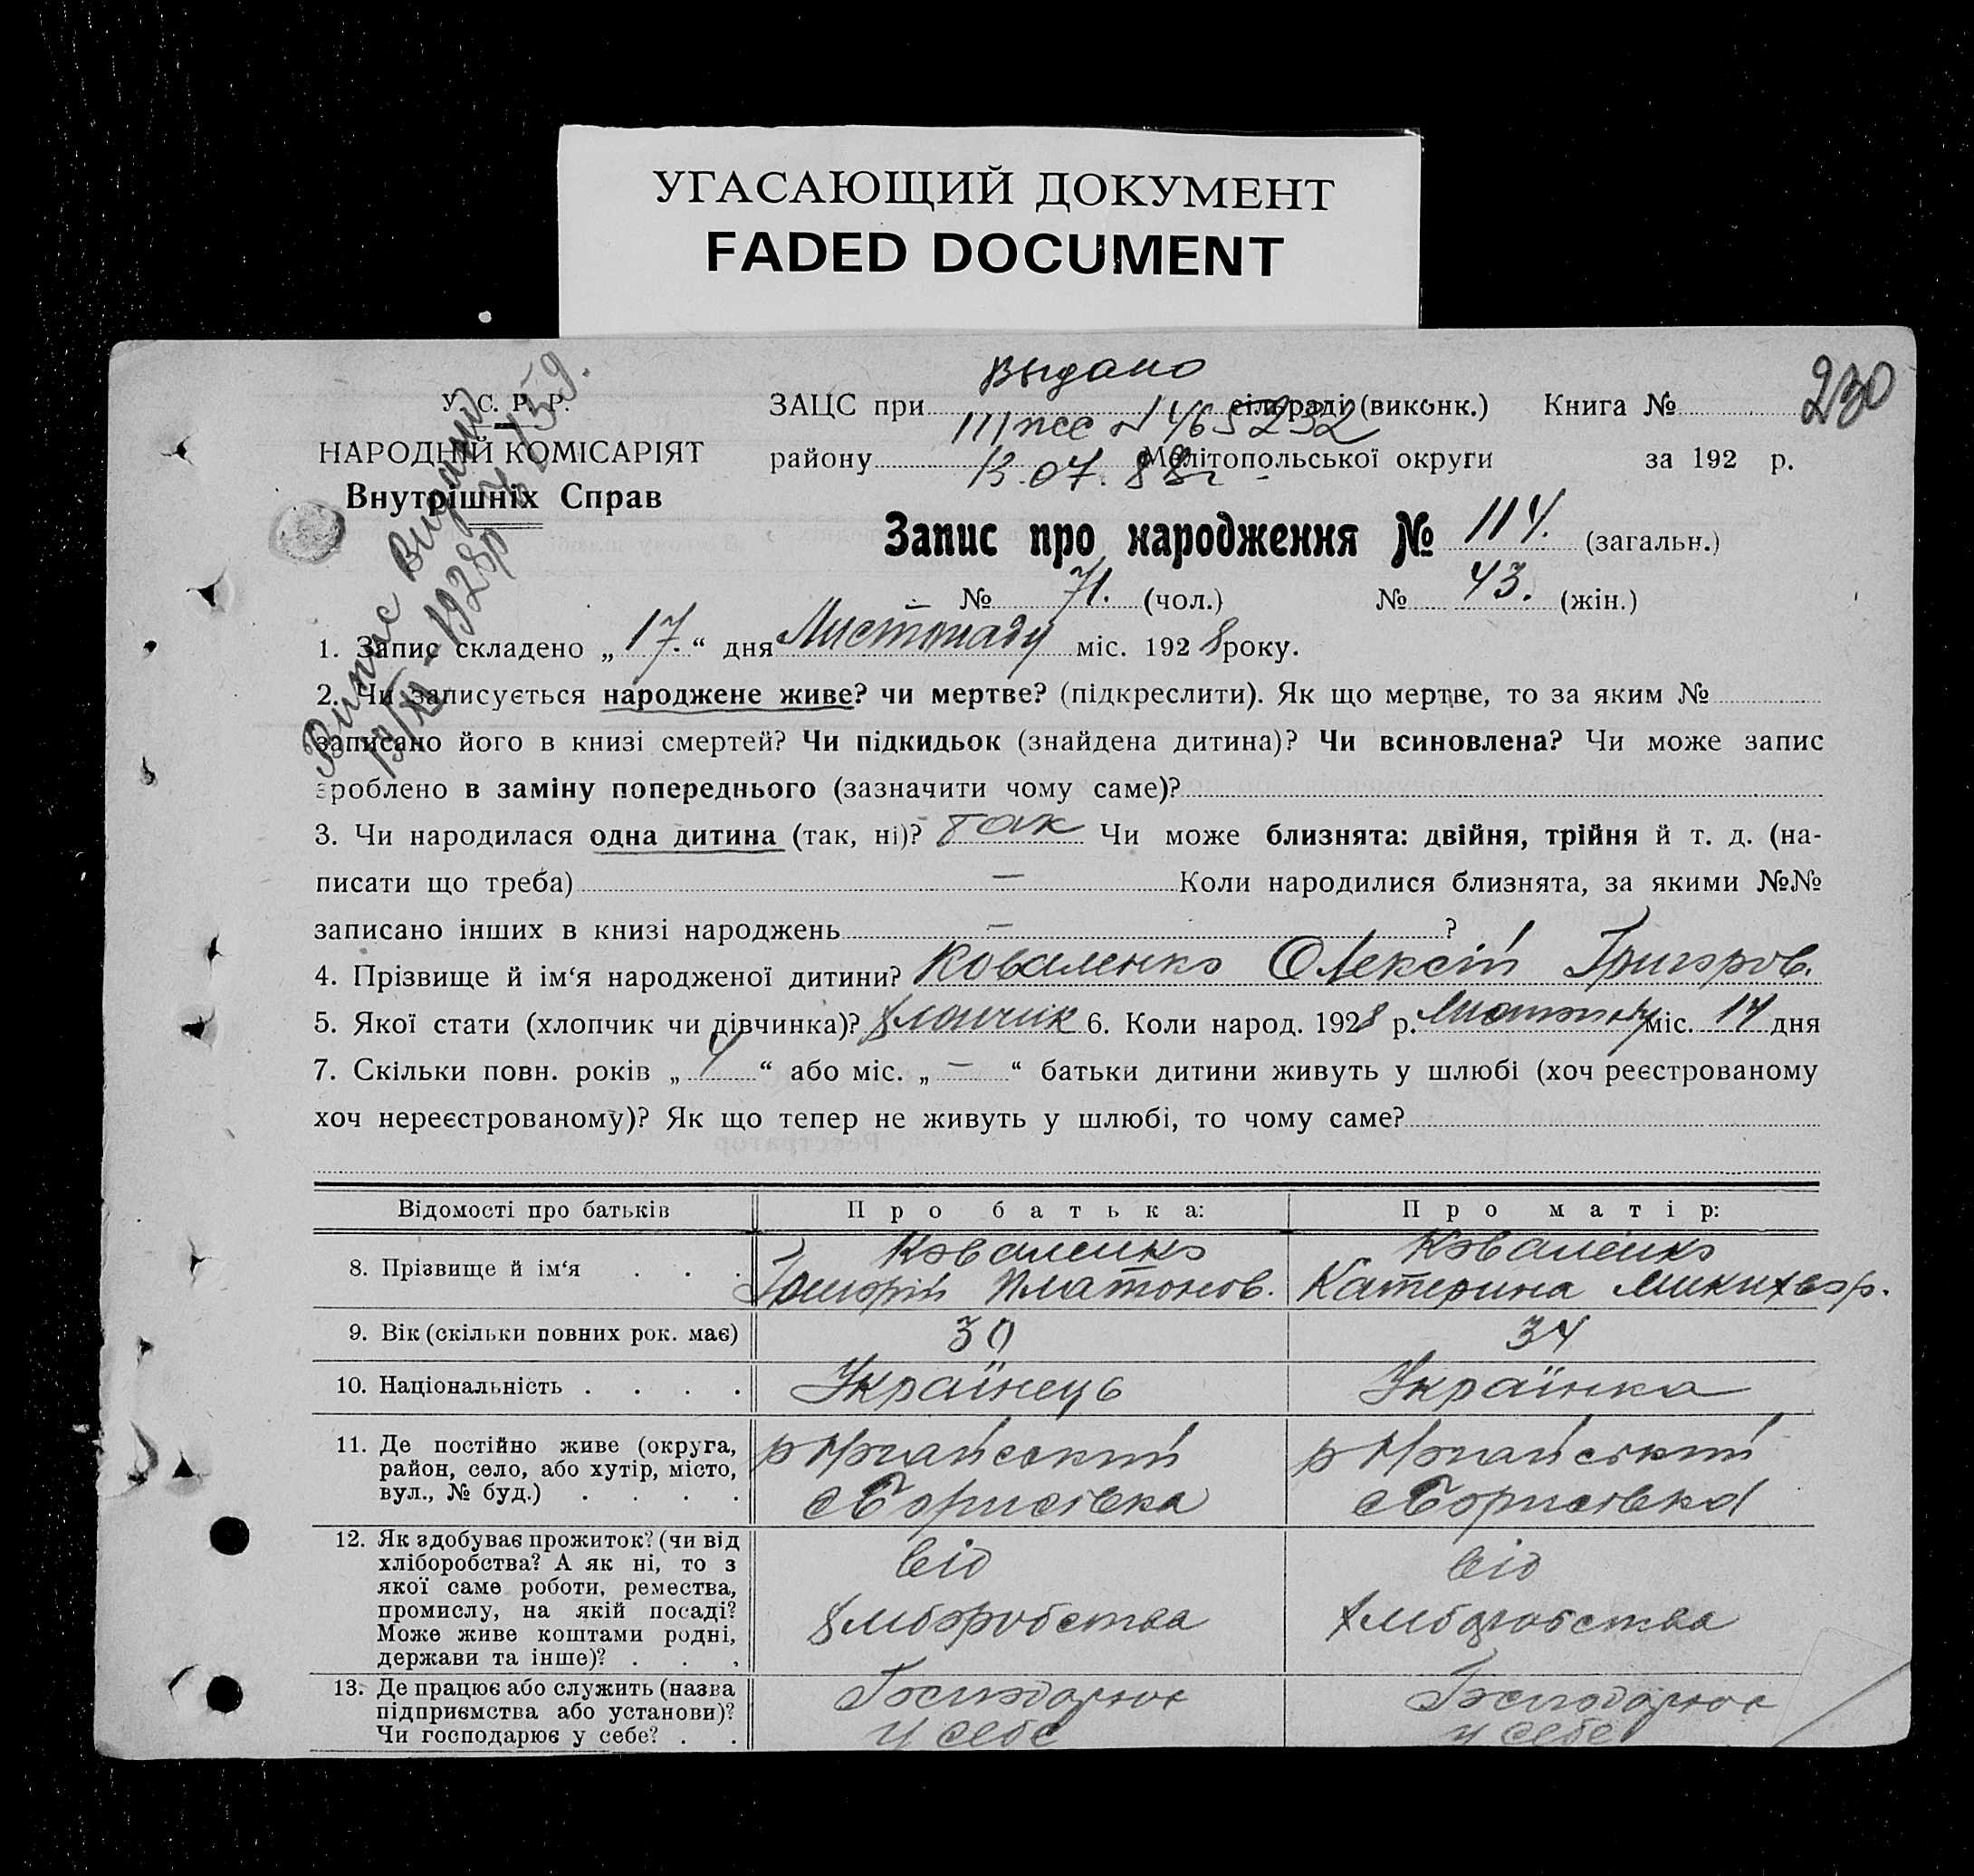 УГАСАЮЩИЙ ДОКУМЕНТ
FADED DOCUMENT
230
У. С. Р. Р.
НАРОДНІЙ КОМІСАРІЯТ
Внутрішніх Справ
Випис Видании
Выдано
ЗАЦС при сільраді (виконк.) Книга №
III ЖС № 465232
району Мелітопольської округи за 192 р.
13.07.88г
Запис про народження № 114. (загальн.)
№ 71. (чол.) № 43. (жін.)
1. Запис складено „17.“ дня Листопаду міс. 1928 року.
2. Чи записується народжене живе? чи мертве? (підкреслити). Як що мертве, то за яким №
записано його в книзі смертей? Чи підкидьок (знайдена дитина)? Чи всиновлена? Чи може запис
зроблено в заміну попереднього (зазначити чому саме)?
3. Чи народилася одна дитина (так, ні)? так Чи може близнята: двійня, трійня й т. д. (на-
писати що треба) — Коли народилися близнята, за якими №№
записано інших в книзі народжень — ?
4. Прізвище й ім‘я народженої дитини? Коваленко Олексій Григоров.
5. Якої стати (хлопчик чи дівчинка)? хлопчик 6. Коли народ. 1928 р. Листопаду міс. 14 дня
7. Скільки повн. років „4“ або міс. „—“ батьки дитини живуть у шлюбі (хоч реєстрованому
хоч нереєстрованому)? Як що тепер не живуть у шлюбі, то чому саме?
Відомості про батьків Про батька: Про матір:
8. Прізвище й ім‘я . . . Коваленко Григорій Платонов. Коваленко Катерина Микифор.
9. Вік (скільки повних рок. має) 30 34
10. Національність . . . . Українець Українка
11. Де постійно живе (округа,
район, село, або хутір, місто,
вул., № буд.) . . . .
р Ногайський р Ногайський
с Борисівка с Борисівка
12. Як здобуває прожиток? (чи від
хліборобства? А як ні, то з
якої саме роботи, ремества,
промислу, на якій посаді?
Може живе коштами родні,
держави та інше)? . . .
від від
хліборобства хліборобства
13. Де працює або служить (назва
підприємства або установи)?
Чи господарює у себе? . .
Господарює Господарює
у себе у себе